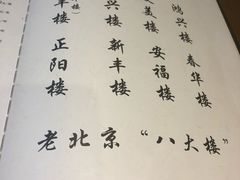 鸿兴楼 春华楼
美楼 安福楼
楼 新丰楼
楼） 正阳楼
老北京“八大楼”